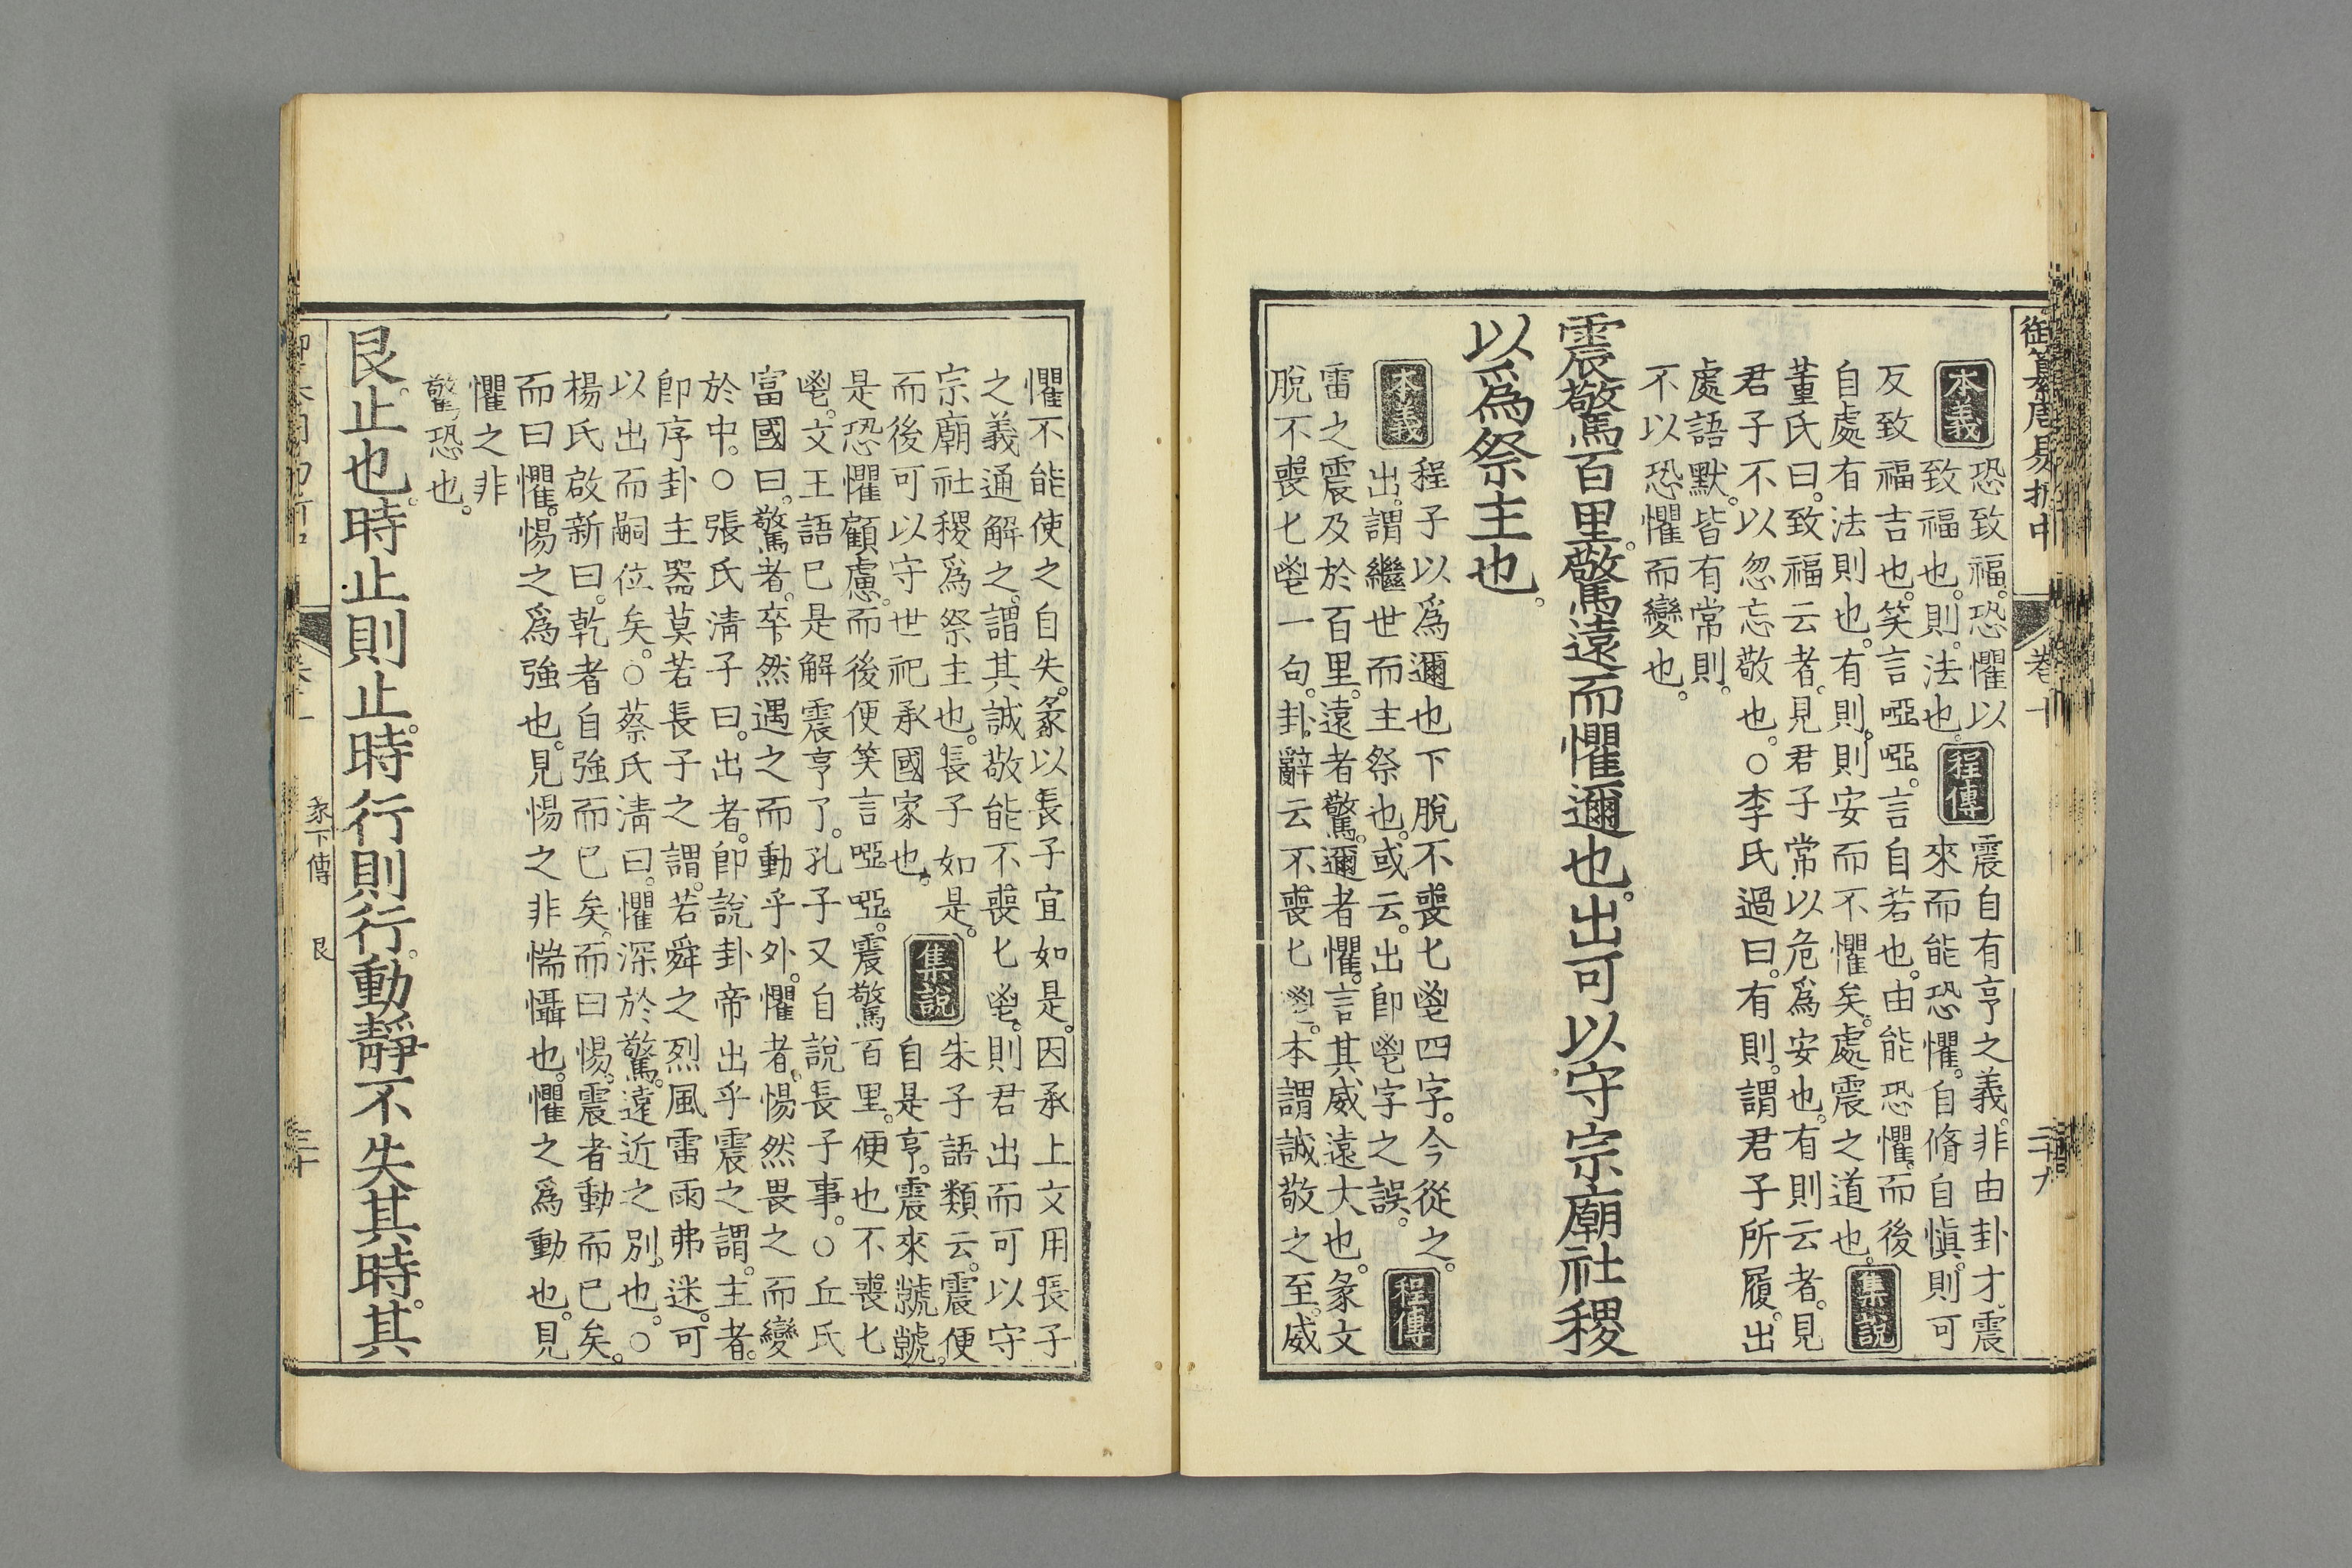 御纂周易折中 卷十 二十九
本義 恐致福。恐懼以
致福也。則。法也。
程傳 震自有亨之義。非由卦才。震
來而能恐懼。自脩自愼。則可
反致福吉也。笑言啞啞。言自若也。由能恐懼。而後
自處有法則也。有則。則安而不懼矣。處震之道也。
集說
董氏曰。致福云者。見君子常以危爲安也。有則云者。見
君子不以忽忘敬也。○李氏過曰。有則。謂君子所履。出
處語默。皆有常則。
不以恐懼而變也。
震驚百里。驚遠而懼邇也。出可以守宗廟社稷
以爲祭主也。
本義 程子以爲邇也下脫不喪匕鬯四字。今從之。
出。謂繼世而主祭也。或云。出卽鬯字之誤。
程傳
雷之震及於百里。遠者驚。邇者懼。言其威遠大也。彖文
脫不喪匕鬯一句。卦辭云不喪匕鬯。本謂誠敬之至。威
懼不能使之自失。彖以長子宜如是。因承上文用長子
之義通解之。謂其誠敬能不喪匕鬯。則君出而可以守
宗廟社稷爲祭主也。長子如是。
而後可以守世祀承國家也。
集說 朱子語類云。震便
自是亨。震來虩虩。
是恐懼顧慮。而後便笑言啞啞。震驚百里。便也不喪匕
鬯。文王語已是解震亨了。孔子又自說長子事。○丘氏
富國曰。驚者。卒然遇之而動乎外。懼者。惕然畏之而變
於中。○張氏淸子曰。出者。卽說卦帝出乎震之謂。主者。
卽序卦主器莫若長子之謂。若舜之烈風雷雨弗迷。可
以出而嗣位矣。○蔡氏淸曰。懼深於驚。遠近之別也。○
楊氏啟新曰。乾者自強而已矣。而曰惕。震者動而已矣。
而曰懼。惕之爲強也。見惕之非惴懾也。懼之爲動也。見
懼之非
驚恐也。
艮。止也。時止則止。時行則行。動靜不失其時。其
彖下傳 艮 三十